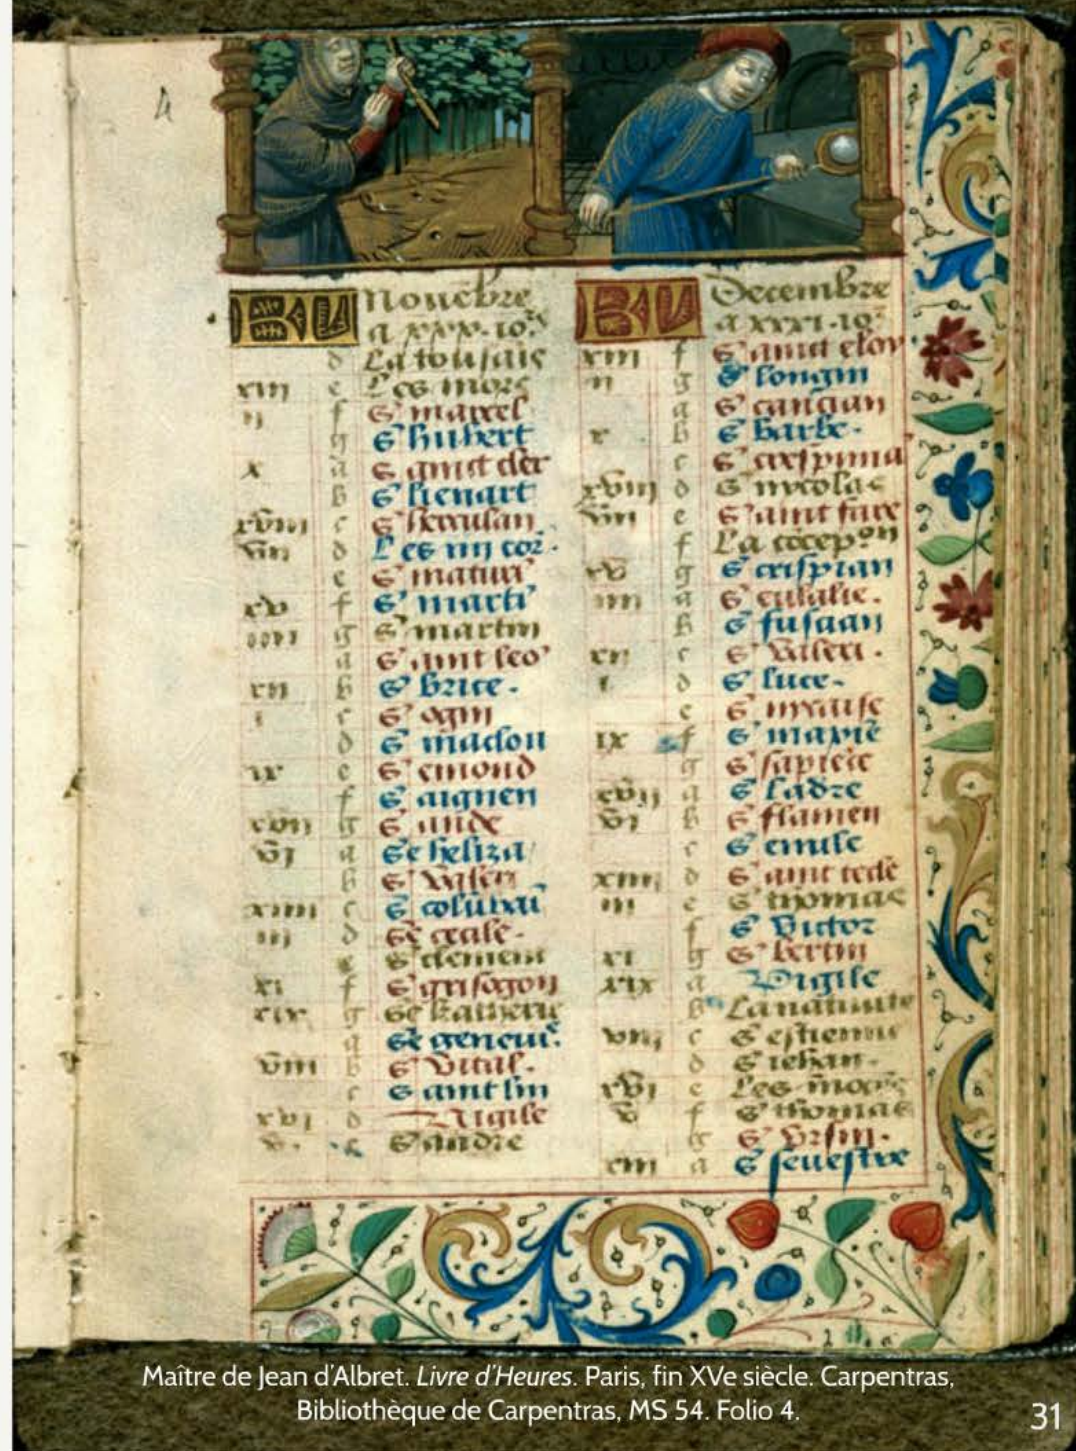 4
KL Nouēbre
a xxx. io's
d La tousais
xiii e Les mors
ii f S' marcel
g S' hubert
x a S' amt cler
b S' lienart
xviii c S' herculan
vii d Les iiii cor.
e S' maturi
xv f S' marti
iiii g S' martin
a S' aint leo
xii b S' brice.
i c S' ogni
d S' maclou
ix e S' emond
f S' aignen
xvii g S' aude
vi a Se heliza
b S' Valeri
xiiii c S' colūbā
iii d Sē cecile.
e S' clement
xi f S' grisogon
xix g Se katherie
a Sē geneui.
viii b S' Vital.
c S' aint lin
xvi d Vigile
v. e S' andre
KL Decembre
a xxxi. io's
xiii f S' aint eloy
ii g S' longin
a S' cancian
x b S' barbe.
c S' crispina
xviii d S' nycolas
vii e S' aint fare
f La cōcepon
xv g S' crispian
iiii a S' eulalie.
b S' fuscian
xii c S' Valeri.
i d S' luce.
e S' nycaise
ix f S' maxiē
g S' sapiēce
xvii a S' ladre
vi b S' flamen
c S' emile
xiiii d S' aint tecle
iii e S' thomas
f S' Victor
xi g S' bertin
xix a Vigile
b La natiuite
viii c S' estienne
d S' iehan.
xvi e Les īnocēs
v f S' thomas
g S' Vrsin.
xiii a S' seuestre
Maître de Jean d'Albret. Livre d'Heures. Paris, fin XVe siècle. Carpentras,
Bibliothèque de Carpentras, MS 54. Folio 4.
31